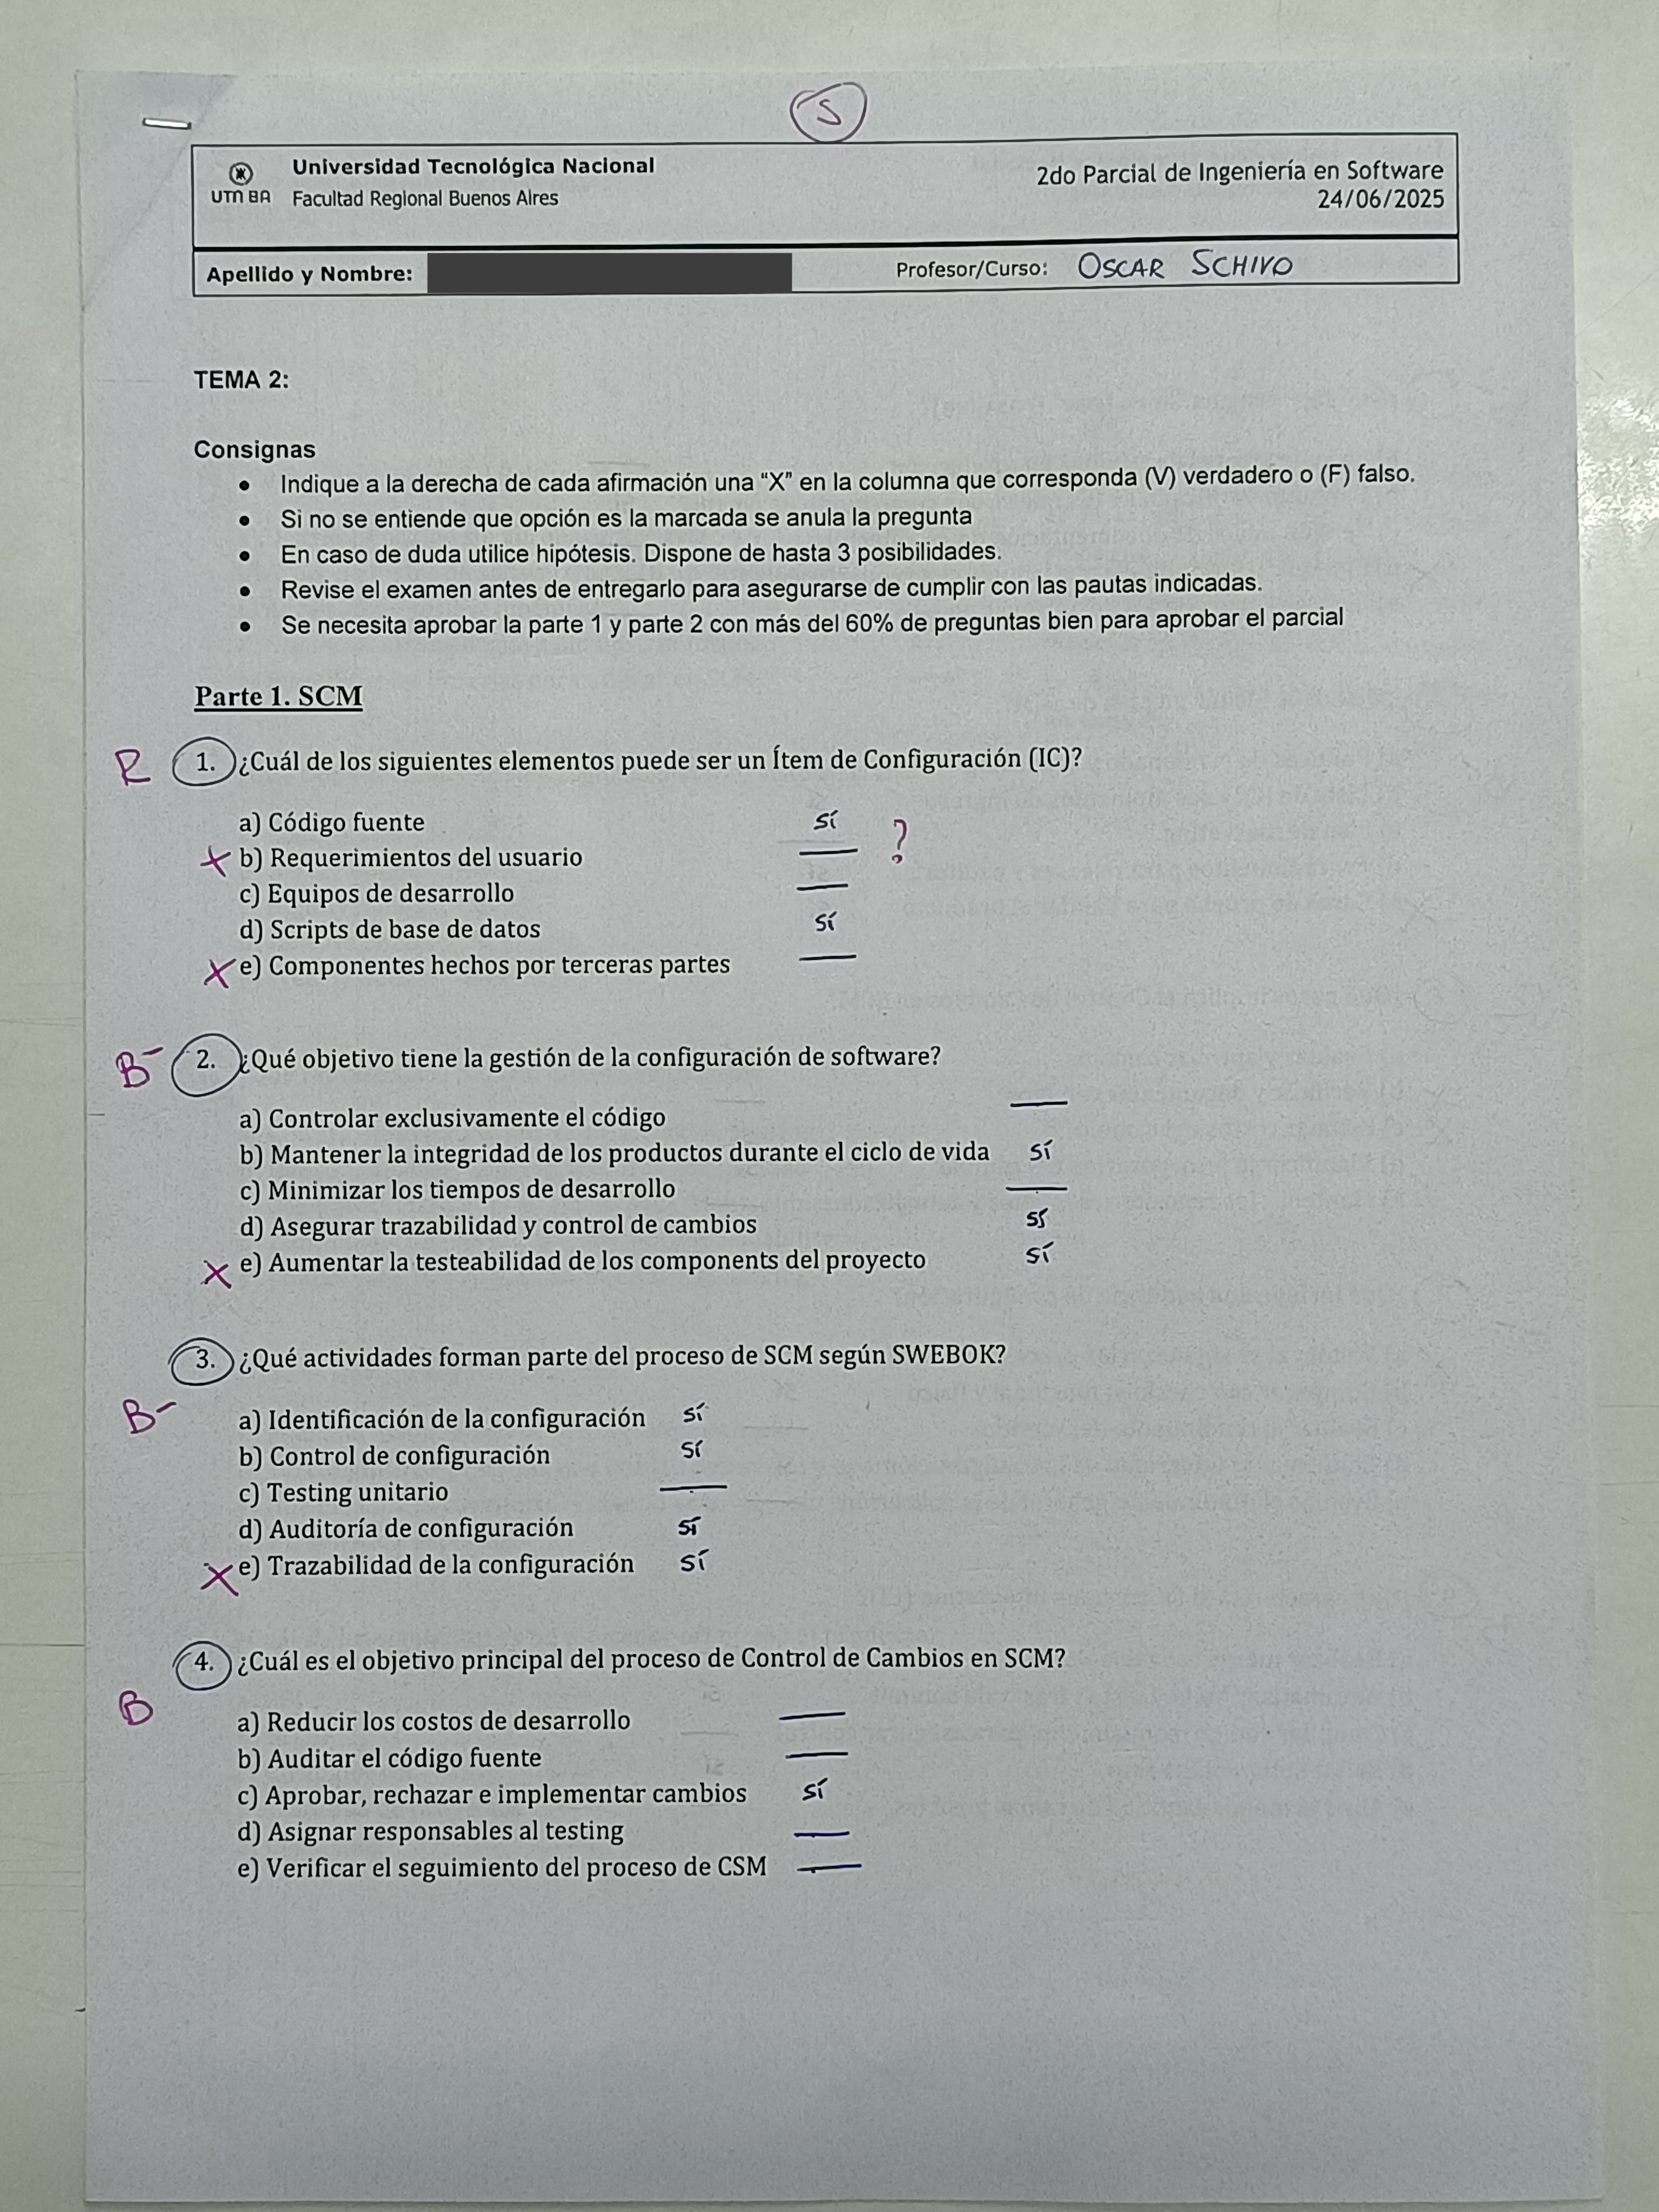 S
UTN BA
Universidad Tecnológica Nacional
Facultad Regional Buenos Aires
2do Parcial de Ingeniería en Software
24/06/2025
Apellido y Nombre:
Profesor/Curso: OSCAR SCHIVO
TEMA 2:
Consignas
• Indique a la derecha de cada afirmación una “X” en la columna que corresponda (V) verdadero o (F) falso.
• Si no se entiende que opción es la marcada se anula la pregunta
• En caso de duda utilice hipótesis. Dispone de hasta 3 posibilidades.
• Revise el examen antes de entregarlo para asegurarse de cumplir con las pautas indicadas.
• Se necesita aprobar la parte 1 y parte 2 con más del 60% de preguntas bien para aprobar el parcial
Parte 1. SCM
R 1. ¿Cuál de los siguientes elementos puede ser un Ítem de Configuración (IC)?
a) Código fuente SÍ
X b) Requerimientos del usuario — ?
c) Equipos de desarrollo —
d) Scripts de base de datos SÍ
X e) Componentes hechos por terceras partes —
B- 2. ¿Qué objetivo tiene la gestión de la configuración de software?
a) Controlar exclusivamente el código —
b) Mantener la integridad de los productos durante el ciclo de vida SÍ
c) Minimizar los tiempos de desarrollo —
d) Asegurar trazabilidad y control de cambios SÍ
X e) Aumentar la testeabilidad de los components del proyecto SÍ
3. ¿Qué actividades forman parte del proceso de SCM según SWEBOK?
B- a) Identificación de la configuración SÍ
b) Control de configuración SÍ
c) Testing unitario —
d) Auditoría de configuración SÍ
X e) Trazabilidad de la configuración SÍ
4. ¿Cuál es el objetivo principal del proceso de Control de Cambios en SCM?
B a) Reducir los costos de desarrollo —
b) Auditar el código fuente —
c) Aprobar, rechazar e implementar cambios SÍ
d) Asignar responsables al testing —
e) Verificar el seguimiento del proceso de CSM —